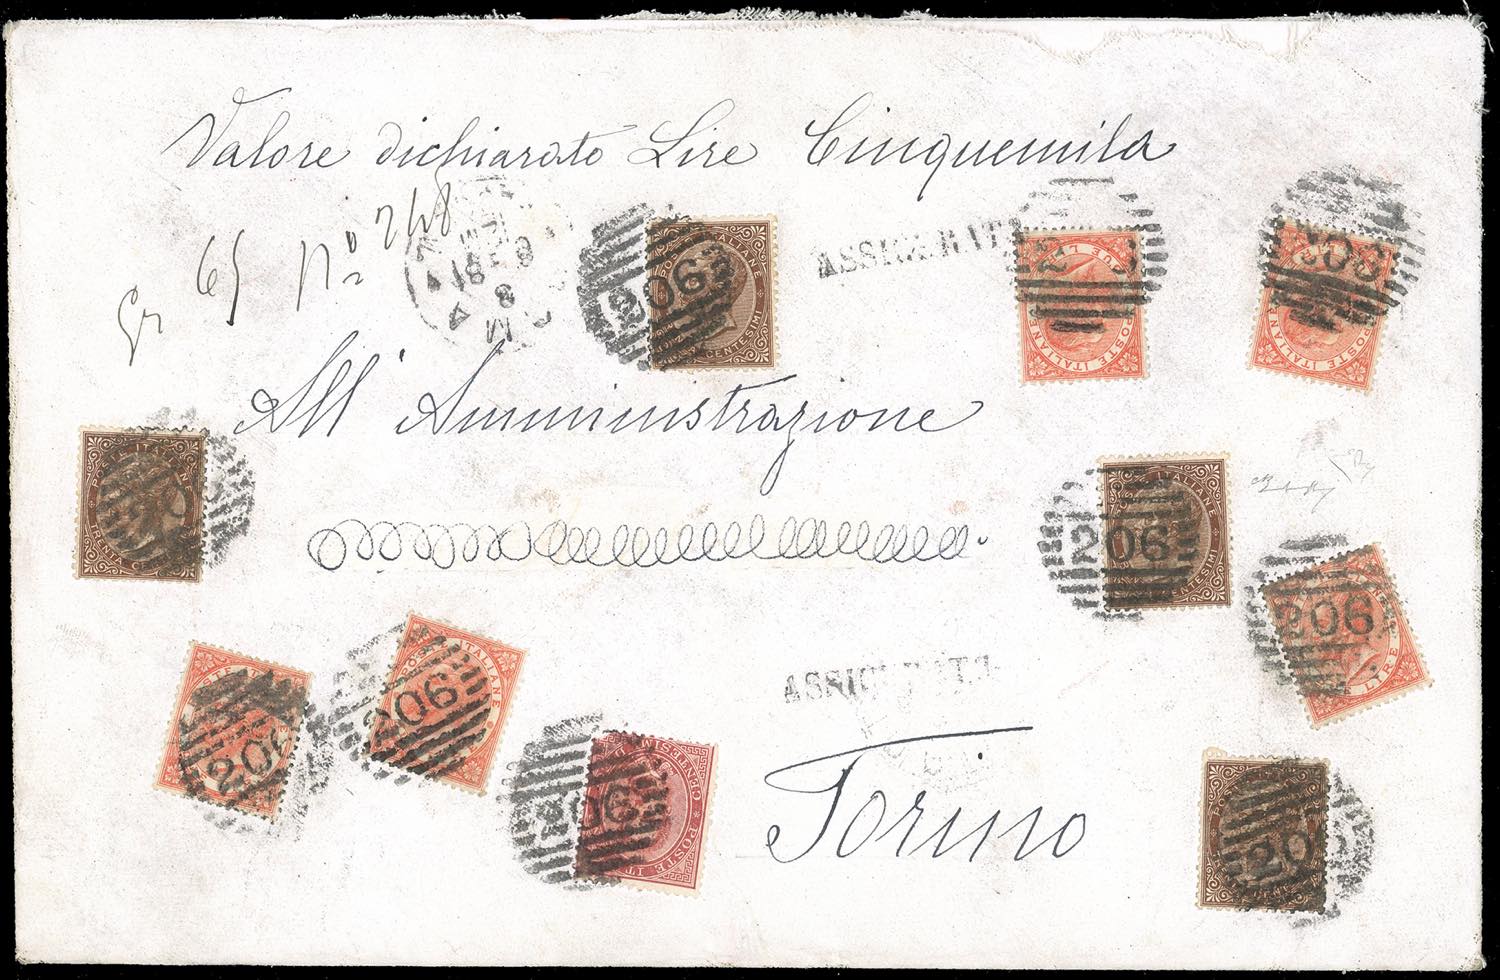 Valore dichiarato Lire Cinquemila
Gr 65 No 248
ASSICURATA
206
All' Amministrazione
POSTE ITALIANE
CENTESIMI
POSTE ITALIANE
DUE LIRE
POSTE ITALIANE
POSTE ITALIANE
TRENTA CE
206
POSTE ITALIANE
CENTESIMI
206
LIRE
206
206
ITALIANE
ASSICURATA
CENTESIMI
POSTE IT
Torino
206